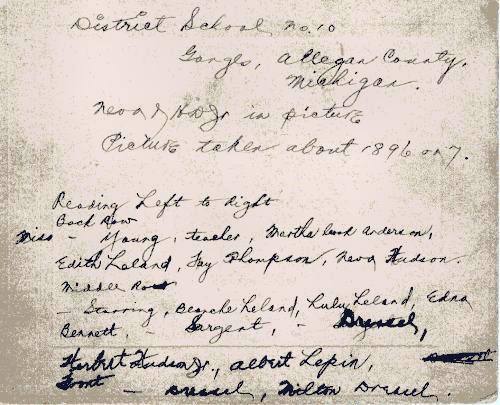 District School No. 10
Ganges, Allegan County,
Michigan.
Neva & HD Jr in picture
Picture taken about 1896 or 7.
Reading Left to Right
Back Row
Miss - Young, teacher, Martha Anderson,
Edith Leland, Fay Thompson, Neva Hudson.
Middle Row
- Starring, Blanche Leland, Lulu Leland, Edna
Bennett, - Sargent, - Dressel,
Herbert Hudson Jr., Albert Lepin,
Front - Dressel, Milton Dressel.